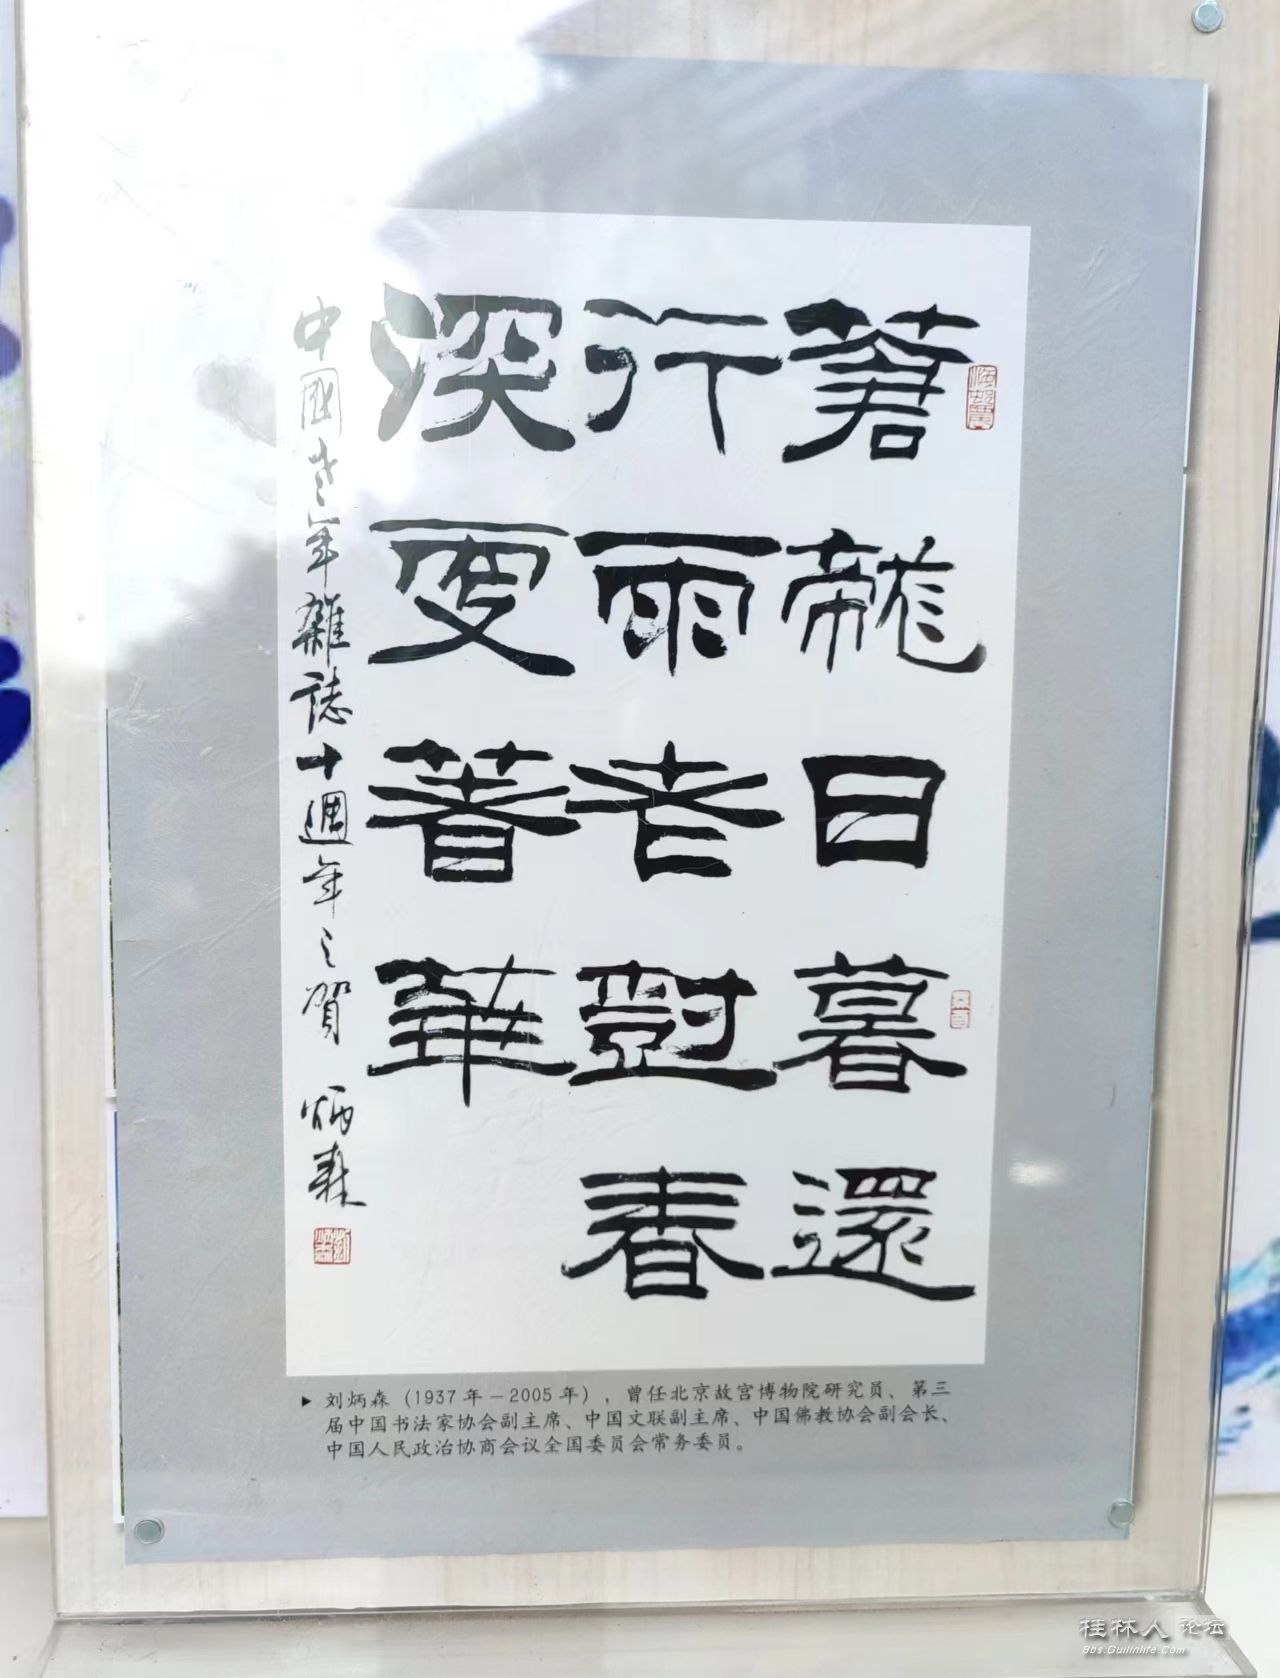 蒼龍日暮還
行雨老樹春
深更著華
中國老年雜誌十週年之賀 炳森
▶ 刘炳森（1937年－2005年），曾任北京故宫博物院研究员、第三
届中国书法家协会副主席、中国文联副主席、中国佛教协会副会长、
中国人民政治协商会议全国委员会常务委员。
桂林人 论坛
Bbs.Guilinlife.Com